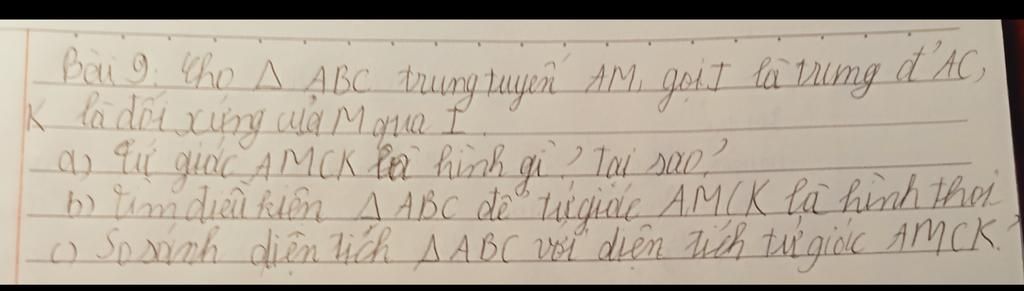 Bài 9: Cho Δ ABC trung tuyến AM, gọi I là trung đ' AC,
K là đối xứng của M qua I.
a) Tứ giác AMCK là hình gì? Tại sao?
b) Tìm điều kiện Δ ABC để tứ giác AMCK là hình thoi
c) So sánh diện tích Δ ABC với diện tích tứ giác AMCK.?